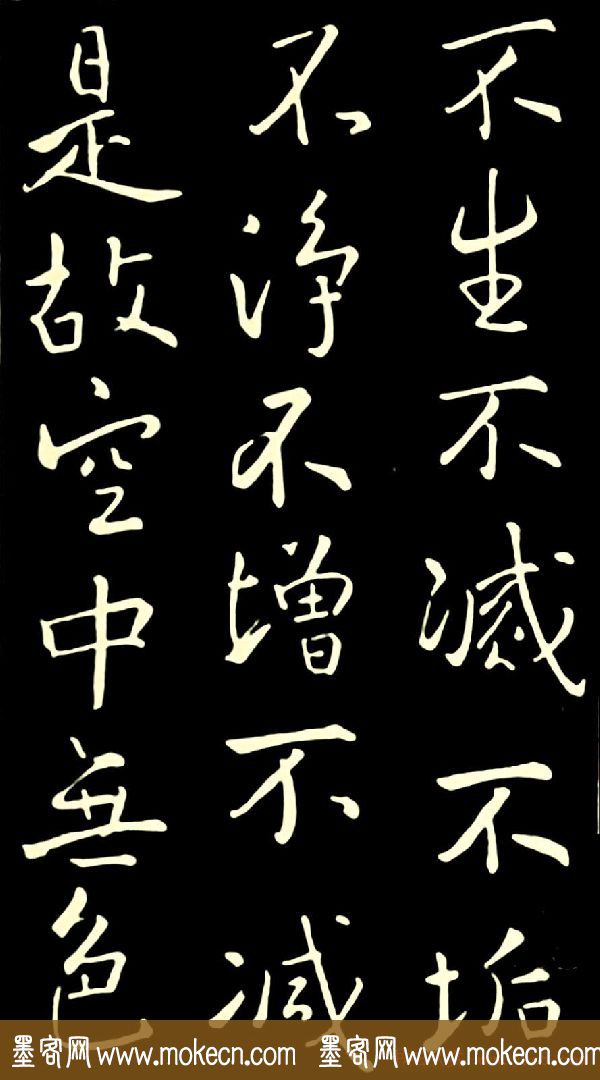 不生不滅不垢
不淨不增不減
是故空中無色
墨客网 www.mokecn.com 墨客网 www.mokecn.com